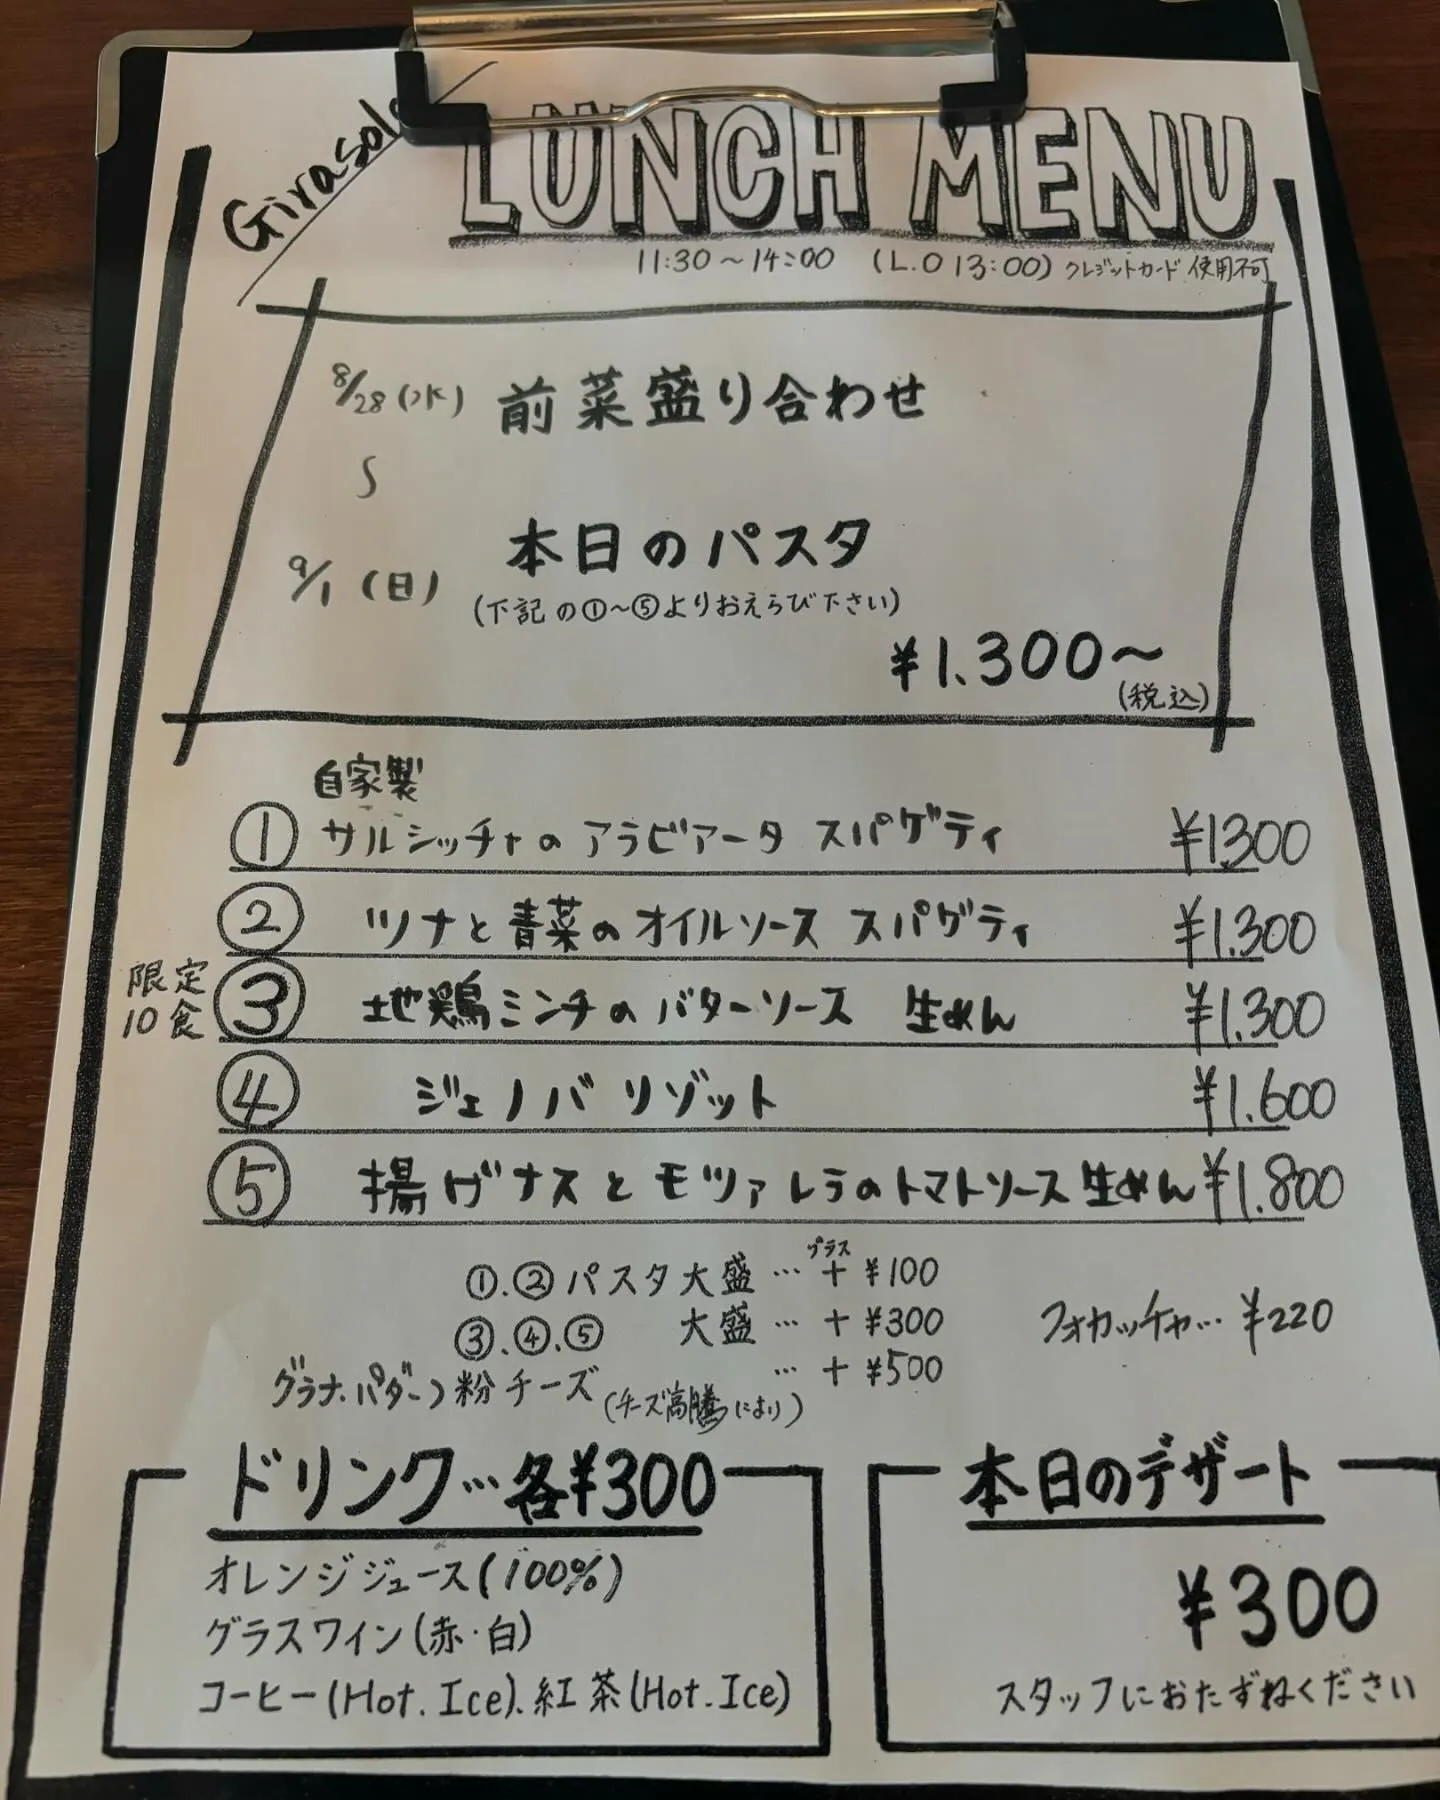 Girasole
LUNCH MENU
11:30〜14:00 (L.O 13:00) クレジットカード使用不可
8/28(水) 前菜盛り合わせ
〜
9/1(日) 本日のパスタ
(下記の①〜⑤よりおえらび下さい)
¥1.300〜
(税込)
自家製
① サルシッチャのアラビアータ スパゲティ ¥1300
② ツナと青菜のオイルソース スパゲティ ¥1.300
限定
10食
③ 地鶏ミンチのバターソース 生めん ¥1.300
④ ジェノバ リゾット ¥1.600
⑤ 揚げナスとモッツァレラのトマトソース 生めん ¥1.800
プラス
①.② パスタ大盛 … + ¥100
③.④.⑤ 大盛 … + ¥300
フォカッチャ… ¥220
グラナ.パダーノ粉チーズ … + ¥500
(チーズ高騰により)
ドリンク…各¥300
オレンジジュース(100%)
グラスワイン(赤・白)
コーヒー(Hot.Ice).紅茶(Hot.Ice)
本日のデザート
¥300
スタッフにおたずねください